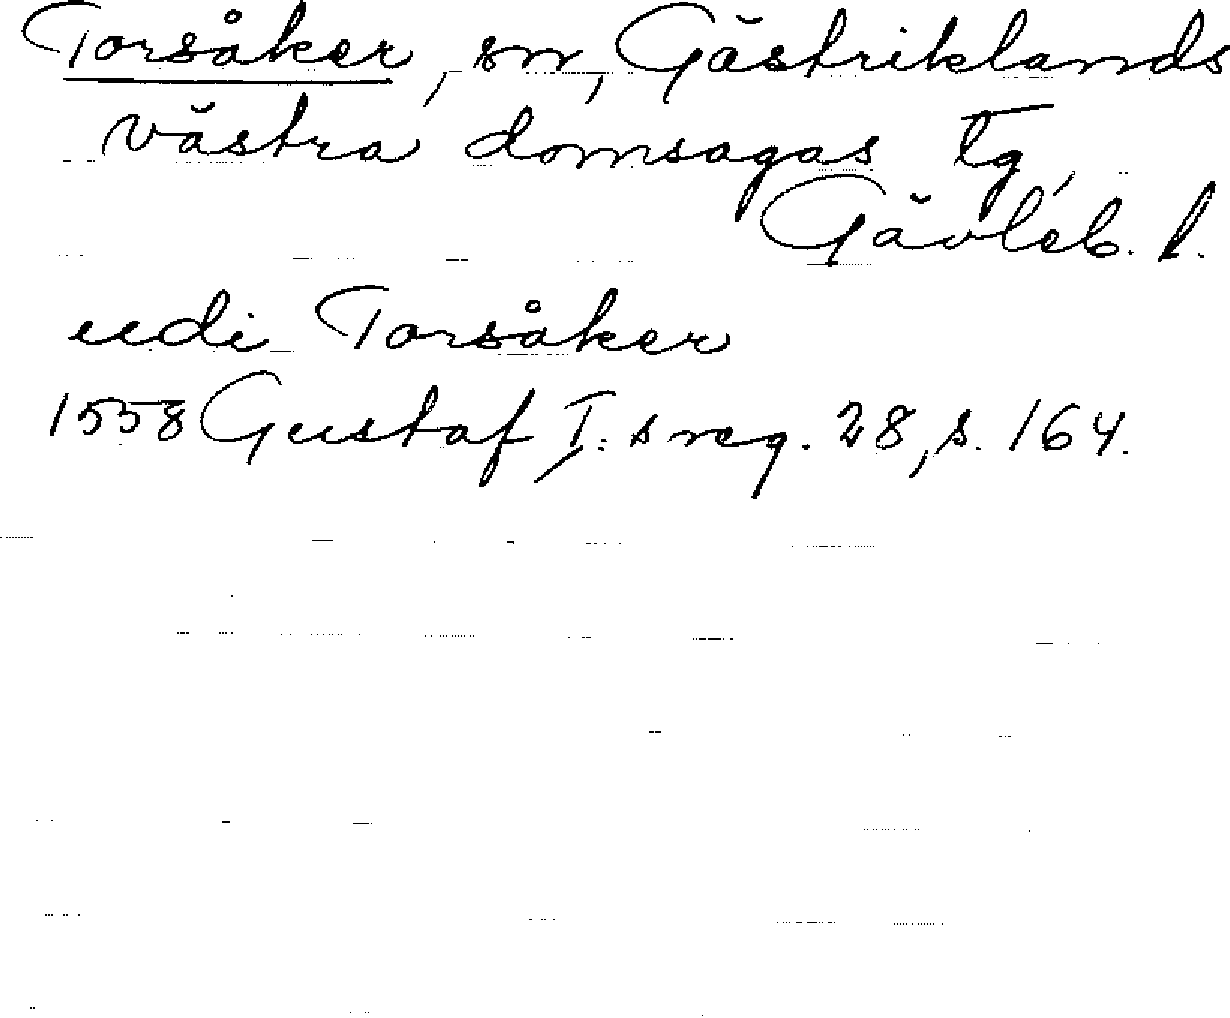 Torsåker, sn, Gästriklands
västra domsagas tg,
Gävleb. l.
udi Torsåker
1558 Gustaf I:s reg. 28, s. 164.